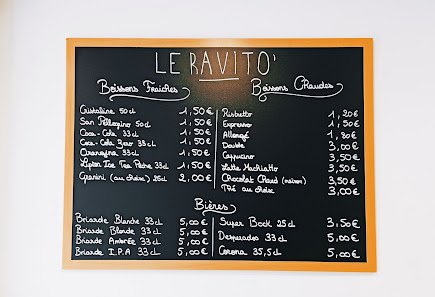 LE RAVITO'
Boissons Fraîches
Cristaline 50 cl 1,50€
San Pellegrino 50cl 1,50€
Coca-Cola 33 cl 1,50€
Coca-Cola Zero 33 cl 1,50€
Orangina 33 cl 1,50€
Lipton Ice Tea Pêche 33 cl 1,50€
Granini (au choix) 25cl 2,00€
Boissons Chaudes
Ristretto 1,20€
Expresso 1,50€
Allongé 1,30€
Double 3,00€
Cappucino 3,50€
Latte Machiatto 3,50€
Chocolat Chaud (maison) 3,50€
Thé au choix 3,00€
Bières
Briarde Blanche 33 cl 5,00€
Briarde Blonde 33 cl 5,00€
Briarde Ambrée 33 cl 5,00€
Briarde I.P.A 33 cl 5,00€
Super Bock 25 cl 3,50€
Desperados 33 cl 5,00€
Corona 35,5 cl 5,00€